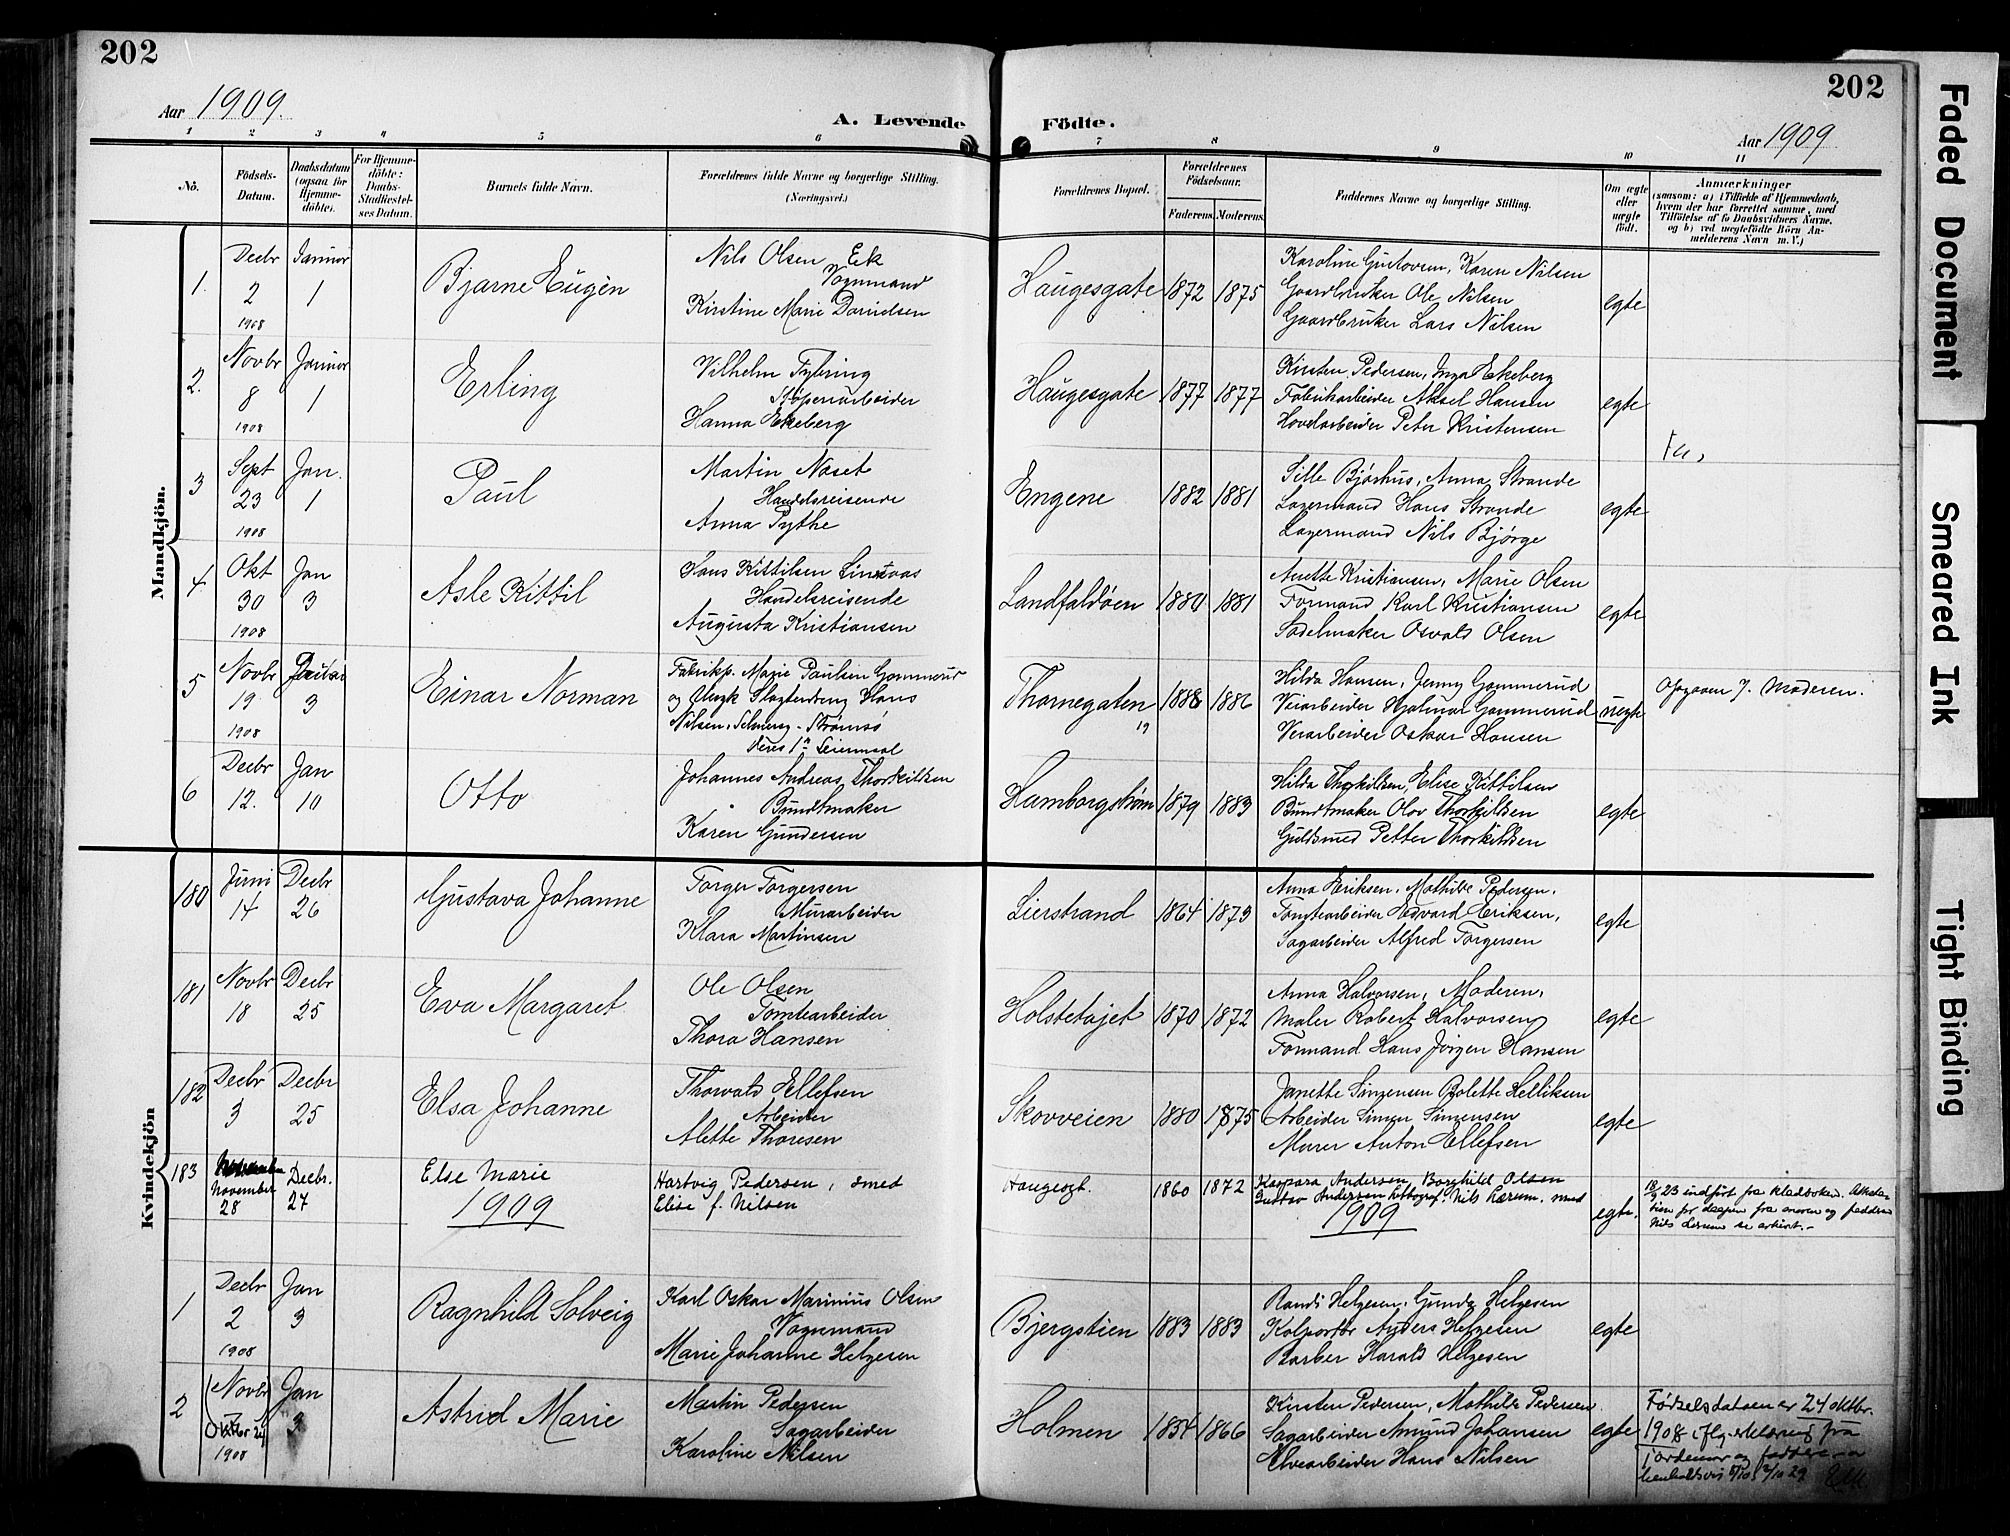 202
Aar 1909.
A. Levende
1 2 3 4 5 6
No.
Födsels-
Datum.
Daabsdatum
(ogsaa for
Hjemme-
döbte).
For Hjemme-
döbte:
Daabs-
Stadfæstel-
ses Datum.
Barnets fulde Navn.
Forældrenes fulde Navne og borgerlige Stilling.
(Næringsvei.)
Födte.
202
Aar 1909
7 8 9 10 11
Forældrenes Bopæl.
Forældrenes
Födselsaar.
Faderens Moderens.
Faddernes Navne og borgerlige Stilling.
Om ægte
eller
uægte
født.
Anmærkninger
(saasom: a) i Tilfælde af Hjemmedaab,
hvem der har forrettet samme, med
Tilföielse af to Daabsvidners Navne.
og b) ved uægtefödte Börn An-
melderens Navn m. V.)
Mandkjön.
1
Decbr
2
1908
Januar
1
Bjarne Eugen
Nils Olsen Eek
Vognmand
Kirstine Marie Danielsen
Haugesgate
1872
1875
Karoline Gustavsen, Karen Nilsen
Gaardbruker Ole Nilsen
Gaardbruker Lars Nilsen
egte
2.
Novbr
8
1908
Januar
1
Erling
Vilhelm Fyhring
Støperiarbeider
Hanna Ekeberg
Haugesgate
1877
1877
Kirsten Pedersen, Inga Ekeberg
Fabrikarbeider Aksel Hansen
Høvelarbeider Peter Kristensen
egte
3
Sept
23
1908
Jan.
1
Paul
Martin Noset
Handelsreisende
Anna Pythe
Engene
1882
1881
Sille Bjørhus, Anna Strande
Lagermand Hans Strande
Lagermand Nils Bjørge
egte
4
Okt
30
1908
Jan
3
Asle Kittil
Hans Kittilsen
Handelsreisende
Augusta Kristiansen
Landfaldøen
1880
1881
Anette Kristiansen, Marie Olsen
Formand Karl Kristiansen
Sadelmaker Osvald Olsen
egte
5
Novbr
19
1908
3
Einar Norman
Fabrikp. Marie Paulsen Gommerud
og Ungk Slagterdreng Hans
Nilsen, Strømsø
deres 1ste Leiermaal
Thornegaten
19
1888
1886
Hilda Hansen, Jenny Gommerud
Veiarbeider Hjalmar Gommerud
Veiarbeider Oskar Hansen
uegte
Opgaven f. Moderen.
6
Decbr
12.
Jan
10
Otto
Johannes Andreas Thorkildsen
Bundtmaker
Karen Gundersen
Hamborgstrøm
1879
1883
Hilda Thorkildsen, Elise Kittilsen
Bundtmaker Olav Thorkildsen
Guldsmed Petter Thorkildsen
egte
Kvindekjön
180
Juni
14
Decbr
26
Gustava Johanne
Torger Torgersen
Murarbeider
Klara Martinsen
Lierstrand
1864
1873
Anna Eriksen, Mathilde Pedersen,
Tomtearbeider Edvard Eriksen,
Sagarbeider Alfred Torgersen
egte
181
Novbr
18
Decbr
25
Eva Margaret
Ole Olsen
Tomtearbeider
Thora Hansen
Holstetajet
1870
1872
Anna Halvorsen, Moderen,
Maler Robert Halvorsen,
Formand Hans Jørgen Hansen
egte
182
Decbr
3
Decbr
25
Elsa Johanne
Thorvald Ellefsen
Arbeider
Alette Thoresen
Skovveien
1880
1875
Janette Simensen Bolette Kelliksen
Arbeider Simen Simensen
Murer Anton Ellefsen
egte
183
November
28
Decbr.
27
Else Marie
Hartvig Pedersen, smed
Elise f. Nilsen
Haugesgt.
1860
1872
Kaspara Andersen, Borghild Olsen
Gustav Andersen, litograf, Nils Lerum, smed
egte.
18/9 23 indført fra kladboken. Atkla-
tien for daapen fra moren og fadderen
Nils Lerum se arkivet.-
1909
1909
1
Decbr
2
1908
Jan
3
Ragnhild Solveig
Karl Oskar Marinius Olsen
Vognmand
Marie Johanne Helgesen
Bjergstien
1883
1883
Randi Helgesen, Gunda Helgesen
Kolportør Anders Helgesen
Barber Harald Helgesen
egte
2
(Novbr
Oktbr 24
1908
Jan
3
Astrid Marie
Martin Pedersen
Sagarbeider
Karoline Nilsen
Holmen
1854
1866
Kirsten Pedersen, Mathilde Pedersen
Sagarbeider Amund Johansen
Elvearbeider Hans Nilsen
egte
Fødselsdatoen er 24 oktbr.
1908 iflg. erklæring fra
Jordemor og faddere
henholdsvis 5/10 2/10 29
Faded Document
Smeared Ink
Tight Binding